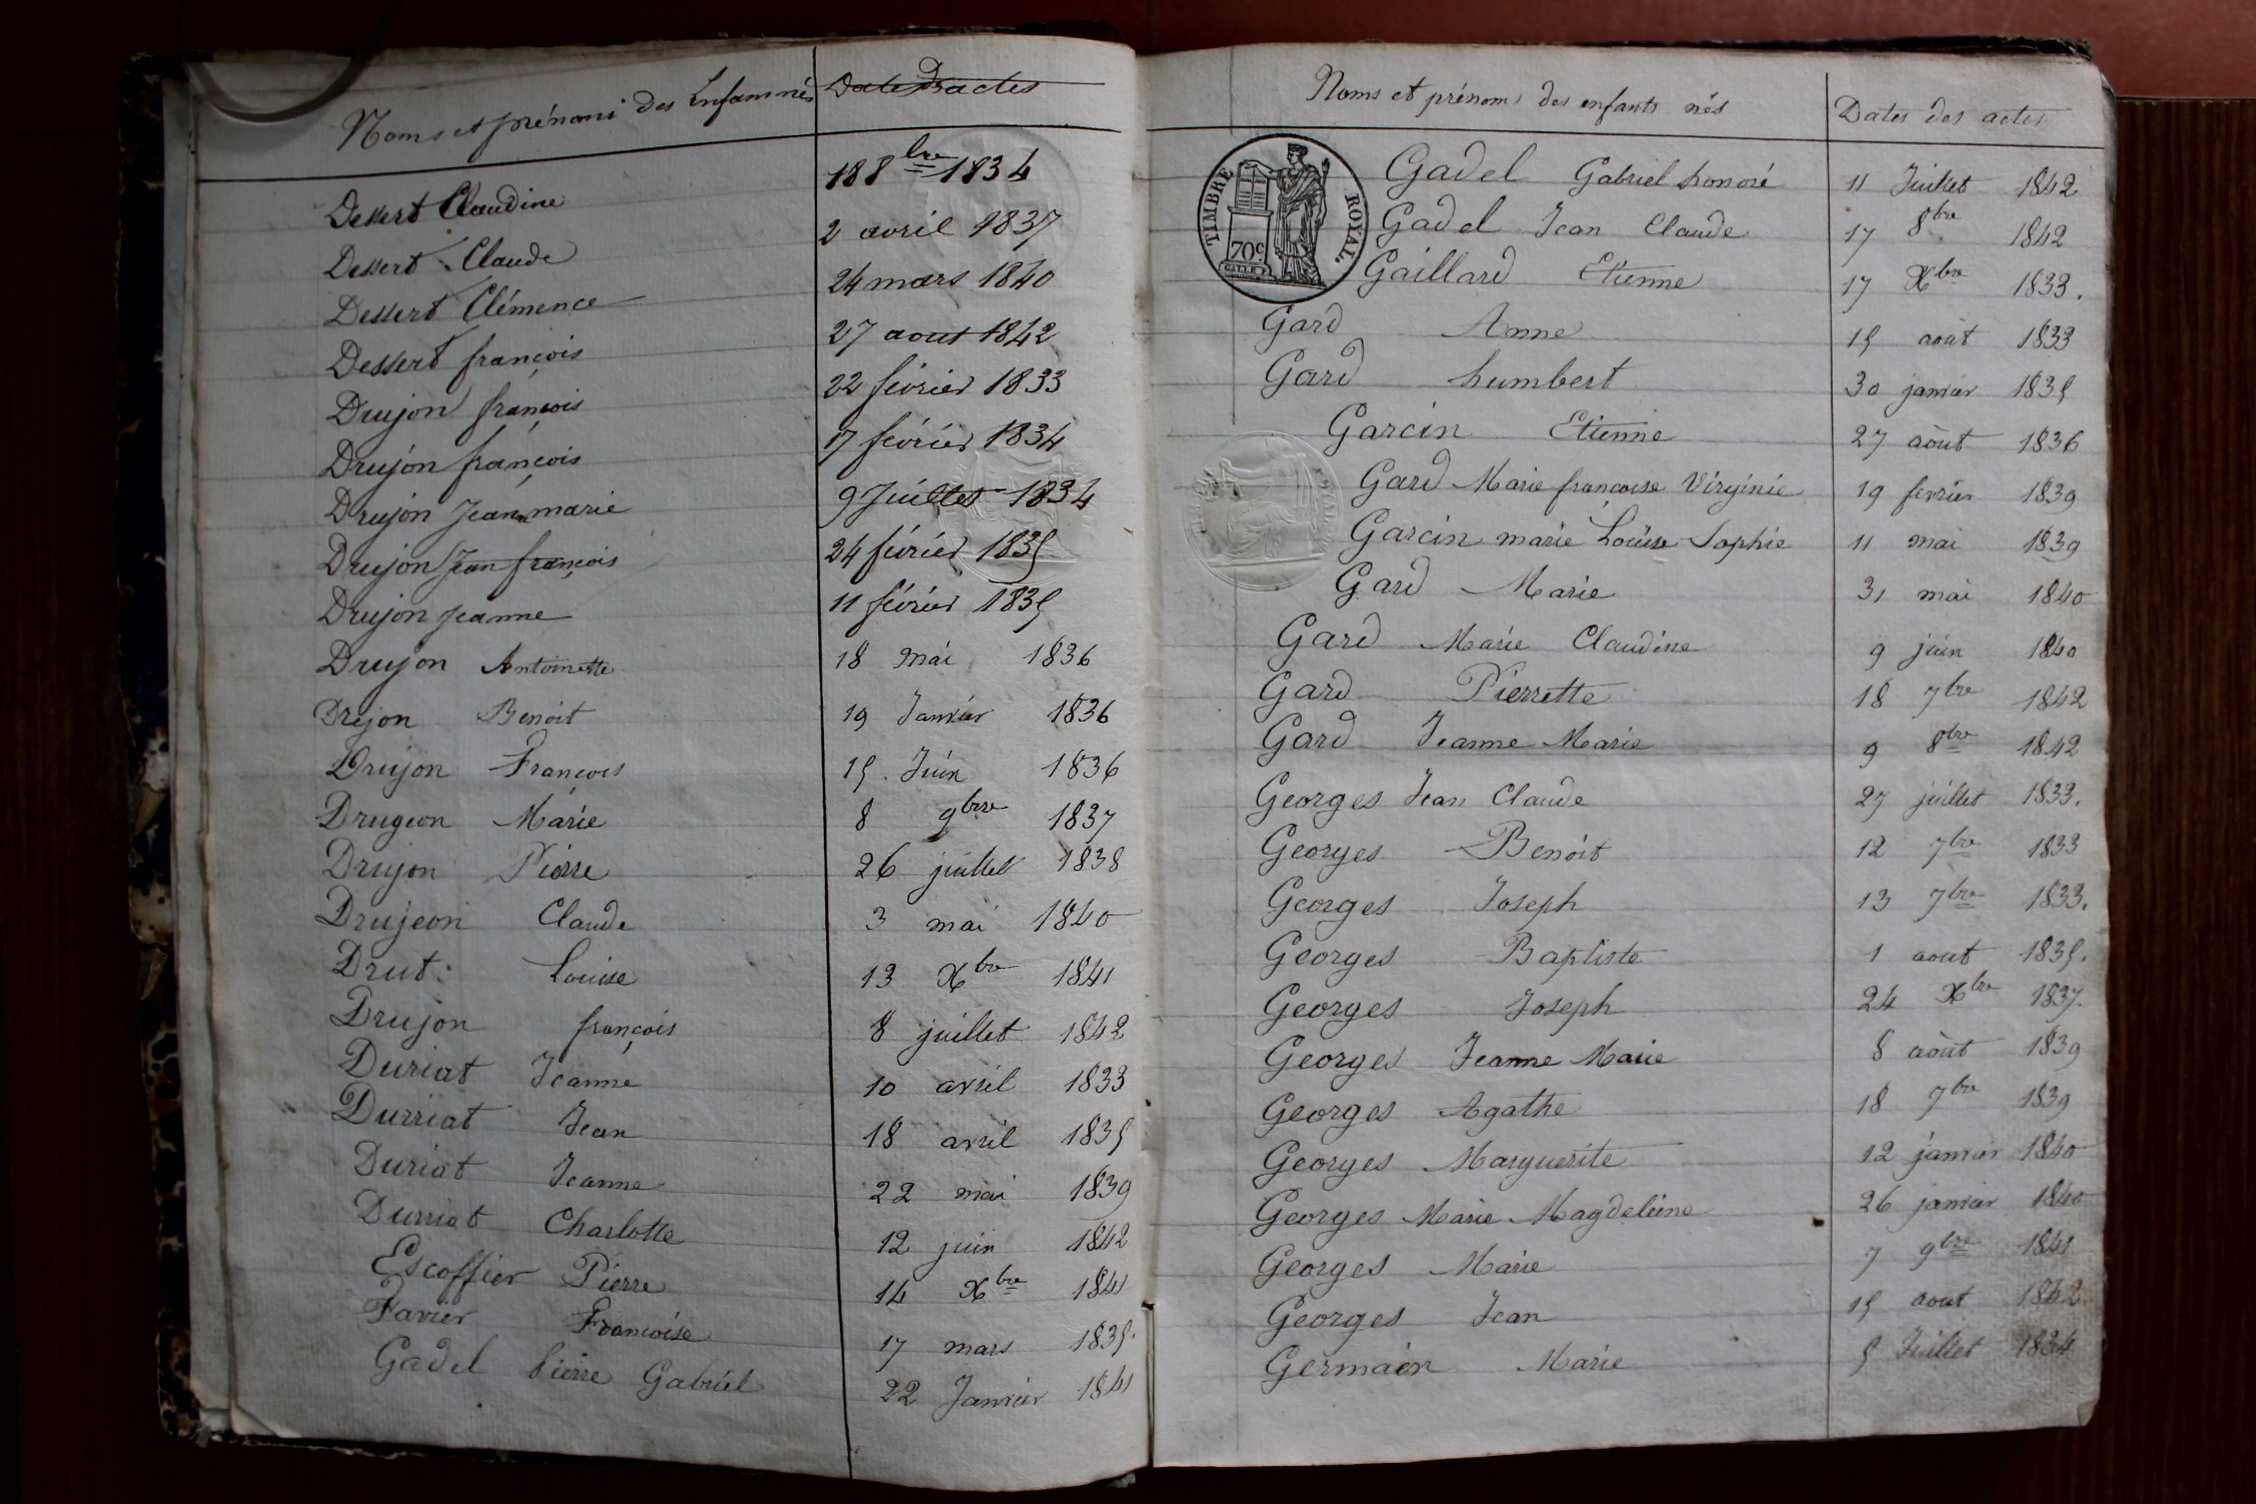 Noms et prénoms des Enfans nés Dates Des actes
Dessert Claudine 18 8bre 1834
Dessert Claude 2 avril 1837
Dessert Clémence 24 mars 1840
Dessert françois 27 aout 1842
Drujon françois 22 février 1833
Drujon françois 17 février 1834
Drujon Jean marie 9 Juillet 1834
Drujon Jean françois 24 février 1835
Drujon Jeanne 11 février 1835
Drujon Antoinette 18 mai 1836
Drejon Benoit 19 Janvier 1836
Drujon François 15 Juin 1836
Drugeon Marie 8 9bre 1837
Drujon Pierre 26 juillet 1838
Drujeon Claude 3 mai 1840
Drut Louise 13 Xbre 1841
Drujon françois 8 juillet 1842
Duriat Jeanne 10 avril 1833
Durriat Jean 18 avril 1835
Duriat Jeanne 22 mai 1839
Durriat Charlotte 12 juin 1842
Escoffier Pierre 14 Xbre 1841
Favier Françoise 17 mars 1835.
Gadel Pierre Gabriel 22 Janvier 1841
Noms et prénoms des enfants nés Dates des actes
TIMBRE ROYAL.
70c.
Gadel Gabriel honoré 11 Juillet 1842
Gadel Jean Claude 17 8bre 1842
Gaillard Etienne 17 Xbre 1833.
Gard Anne 15 août 1833
Gard humbert 30 janvier 1835
Garcin Etienne 27 août 1836
Gard Marie françoise Virginie 19 fevrier 1839
Garcin marie Louise Sophie 11 mai 1839
Gard Marie 31 mai 1840
Gard Marie Claudine 9 juin 1840
Gard Pierrette 18 7bre 1842
Gard Jeanne Marie 9 8bre 1842
Georges Jean Claude 27 juillet 1833.
Georges Benoit 12 7bre 1833
Georges Joseph 13 7bre 1833.
Georges Baptiste 1 aout 1835.
Georges Joseph 24 Xbre 1837.
Georges Jeanne Marie 8 août 1839
Georges Agathe 18 7bre 1839
Georges Marguerite 12 janvier 1840
Georges Marie Magdeleine 26 janvier 1840
Georges Marie 7 9bre 1841
Georges Jean 15 aout 1842
Germain Marie 5 Juillet 1834